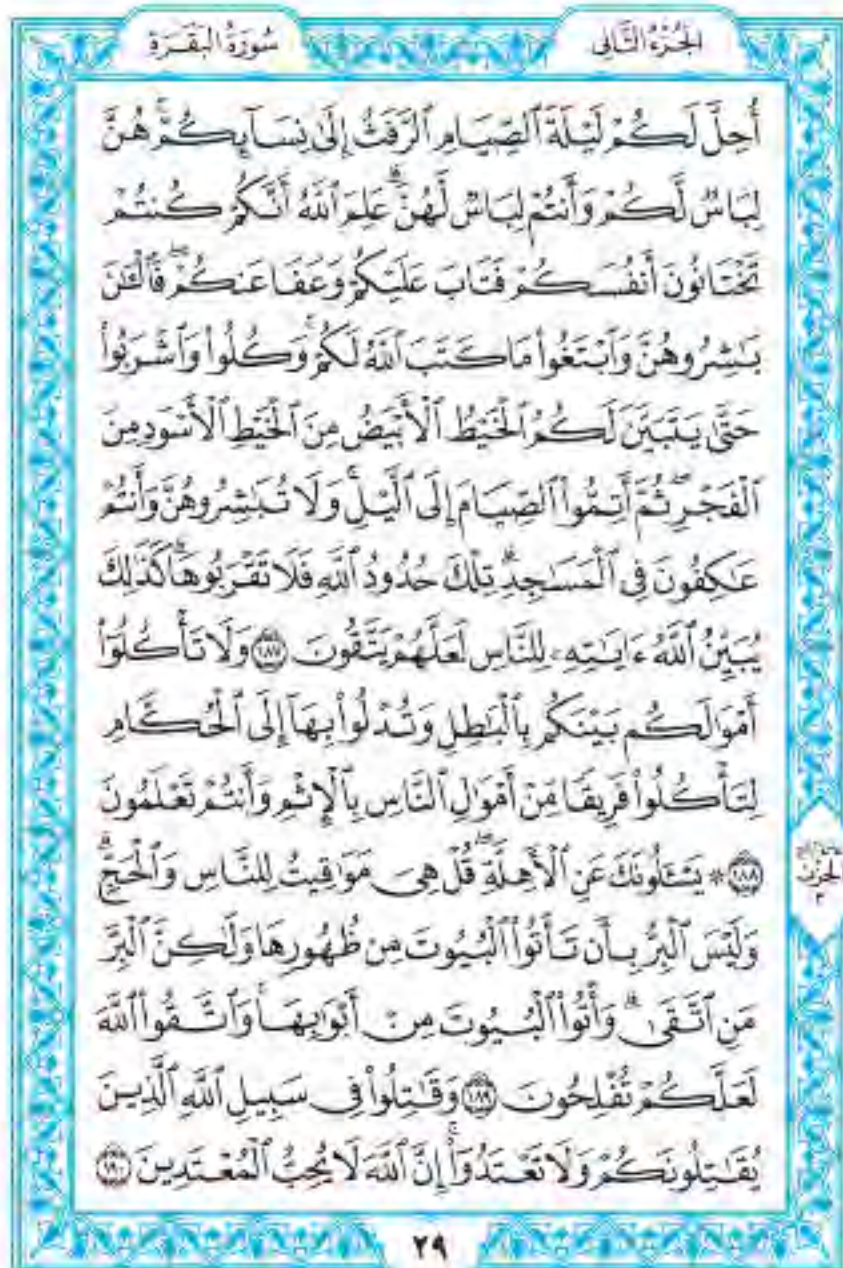 سُورَةُ الْبَقَرَةِ
الجُزْءُ الثَّانِي
أُحِلَّ لَكُمْ لَيْلَةَ ٱلصِّيَامِ ٱلرَّفَثُ إِلَىٰ نِسَآئِكُمْ ۚ هُنَّ
لِبَاسٌ لَّكُمْ وَأَنتُمْ لِبَاسٌ لَّهُنَّ ۗ عَلِمَ ٱللَّهُ أَنَّكُمْ كُنتُمْ
تَخْتَانُونَ أَنفُسَكُمْ فَتَابَ عَلَيْكُمْ وَعَفَا عَنكُمْ ۖ فَٱلْـَٰٔنَ
بَـٰشِرُوهُنَّ وَٱبْتَغُوا۟ مَا كَتَبَ ٱللَّهُ لَكُمْ ۚ وَكُلُوا۟ وَٱشْرَبُوا۟
حَتَّىٰ يَتَبَيَّنَ لَكُمُ ٱلْخَيْطُ ٱلْأَبْيَضُ مِنَ ٱلْخَيْطِ ٱلْأَسْوَدِ مِنَ
ٱلْفَجْرِ ۖ ثُمَّ أَتِمُّوا۟ ٱلصِّيَامَ إِلَى ٱلَّيْلِ ۚ وَلَا تُبَـٰشِرُوهُنَّ وَأَنتُمْ
عَـٰكِفُونَ فِى ٱلْمَسَـٰجِدِ ۗ تِلْكَ حُدُودُ ٱللَّهِ فَلَا تَقْرَبُوهَا ۗ كَذَٰلِكَ
يُبَيِّنُ ٱللَّهُ ءَايَـٰتِهِۦ لِلنَّاسِ لَعَلَّهُمْ يَتَّقُونَ ١٨٧ وَلَا تَأْكُلُوٓا۟
أَمْوَٰلَكُم بَيْنَكُم بِٱلْبَـٰطِلِ وَتُدْلُوا۟ بِهَآ إِلَى ٱلْحُكَّامِ
لِتَأْكُلُوا۟ فَرِيقًا مِّنْ أَمْوَٰلِ ٱلنَّاسِ بِٱلْإِثْمِ وَأَنتُمْ تَعْلَمُونَ
١٨٨ * يَسْـَٔلُونَكَ عَنِ ٱلْأَهِلَّةِ ۖ قُلْ هِىَ مَوَٰقِيتُ لِلنَّاسِ وَٱلْحَجِّ ۗ
وَلَيْسَ ٱلْبِرُّ بِأَن تَأْتُوا۟ ٱلْبُيُوتَ مِن ظُهُورِهَا وَلَـٰكِنَّ ٱلْبِرَّ
مَنِ ٱتَّقَىٰ ۗ وَأْتُوا۟ ٱلْبُيُوتَ مِنْ أَبْوَٰبِهَا ۚ وَٱتَّقُوا۟ ٱللَّهَ
لَعَلَّكُمْ تُفْلِحُونَ ١٨٩ وَقَـٰتِلُوا۟ فِى سَبِيلِ ٱللَّهِ ٱلَّذِينَ
يُقَـٰتِلُونَكُمْ وَلَا تَعْتَدُوٓا۟ ۚ إِنَّ ٱللَّهَ لَا يُحِبُّ ٱلْمُعْتَدِينَ ١٩٠
الحِزْب
٣
٢٩